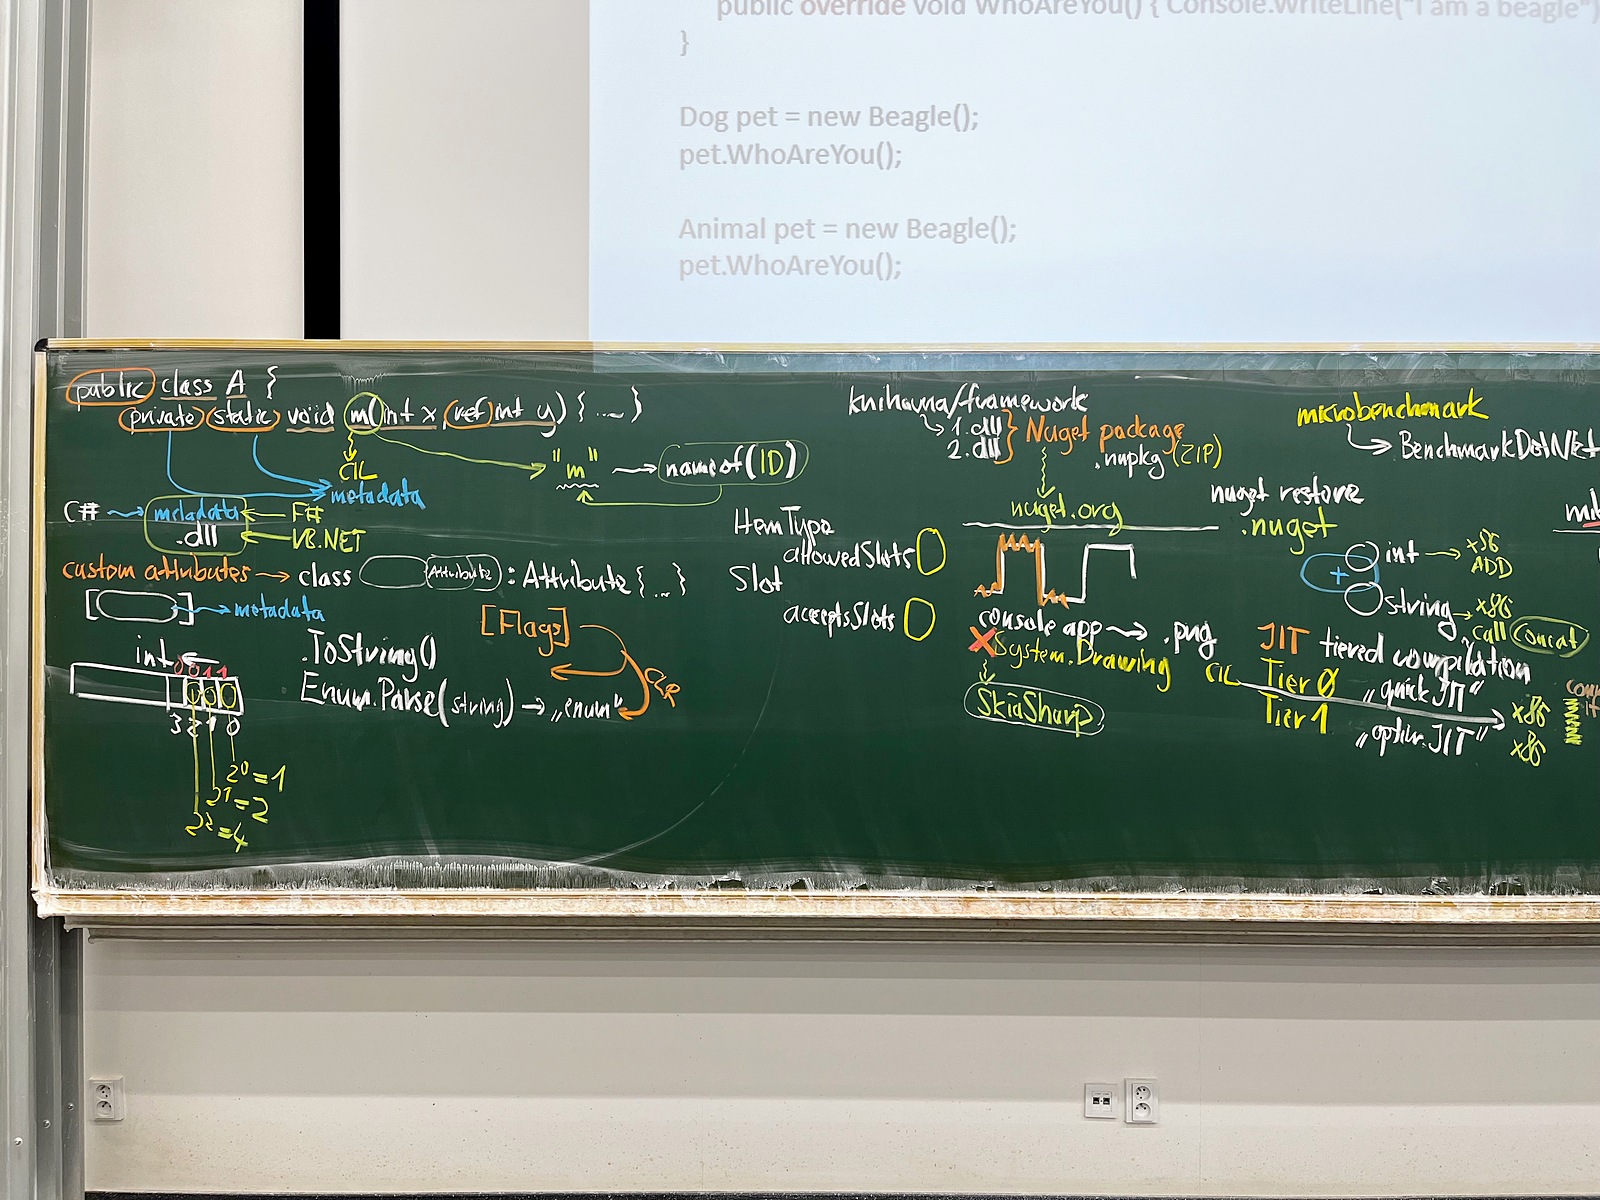 public override void WhoAreYou() { Console.WriteLine("I am a beagle")
}
Dog pet = new Beagle();
pet.WhoAreYou();
Animal pet = new Beagle();
pet.WhoAreYou();
public class A {
private static void m(int x, ref int y) { ... }
CIL
metadata
"m" → nameof(ID)
C# → metadata ← F#
.dll ← VB.NET
custom attributes → class Attribute : Attribute { ... }
[ ] → metadata
int
0 0 1 1
3 2 1 0
2⁰ = 1
2¹ = 2
2² = 4
.ToString()
Enum.Parse(string) → „enum"
[Flags]
ItemType
allowedSlots
Slot
acceptsSlots
knihovna/framework
1. dll
2. dll
Nuget package
.nupkg (ZIP)
nuget.org
console app → .png
System.Drawing
SkiaSharp
microbenchmark
→ BenchmarkDotNet
nuget restore
.nuget
+
int → x86
ADD
string → x86
call Concat
JIT tiered compilation
CIL Tier 0 „quick JIT"
Tier 1 „optim. JIT"
x86
x86